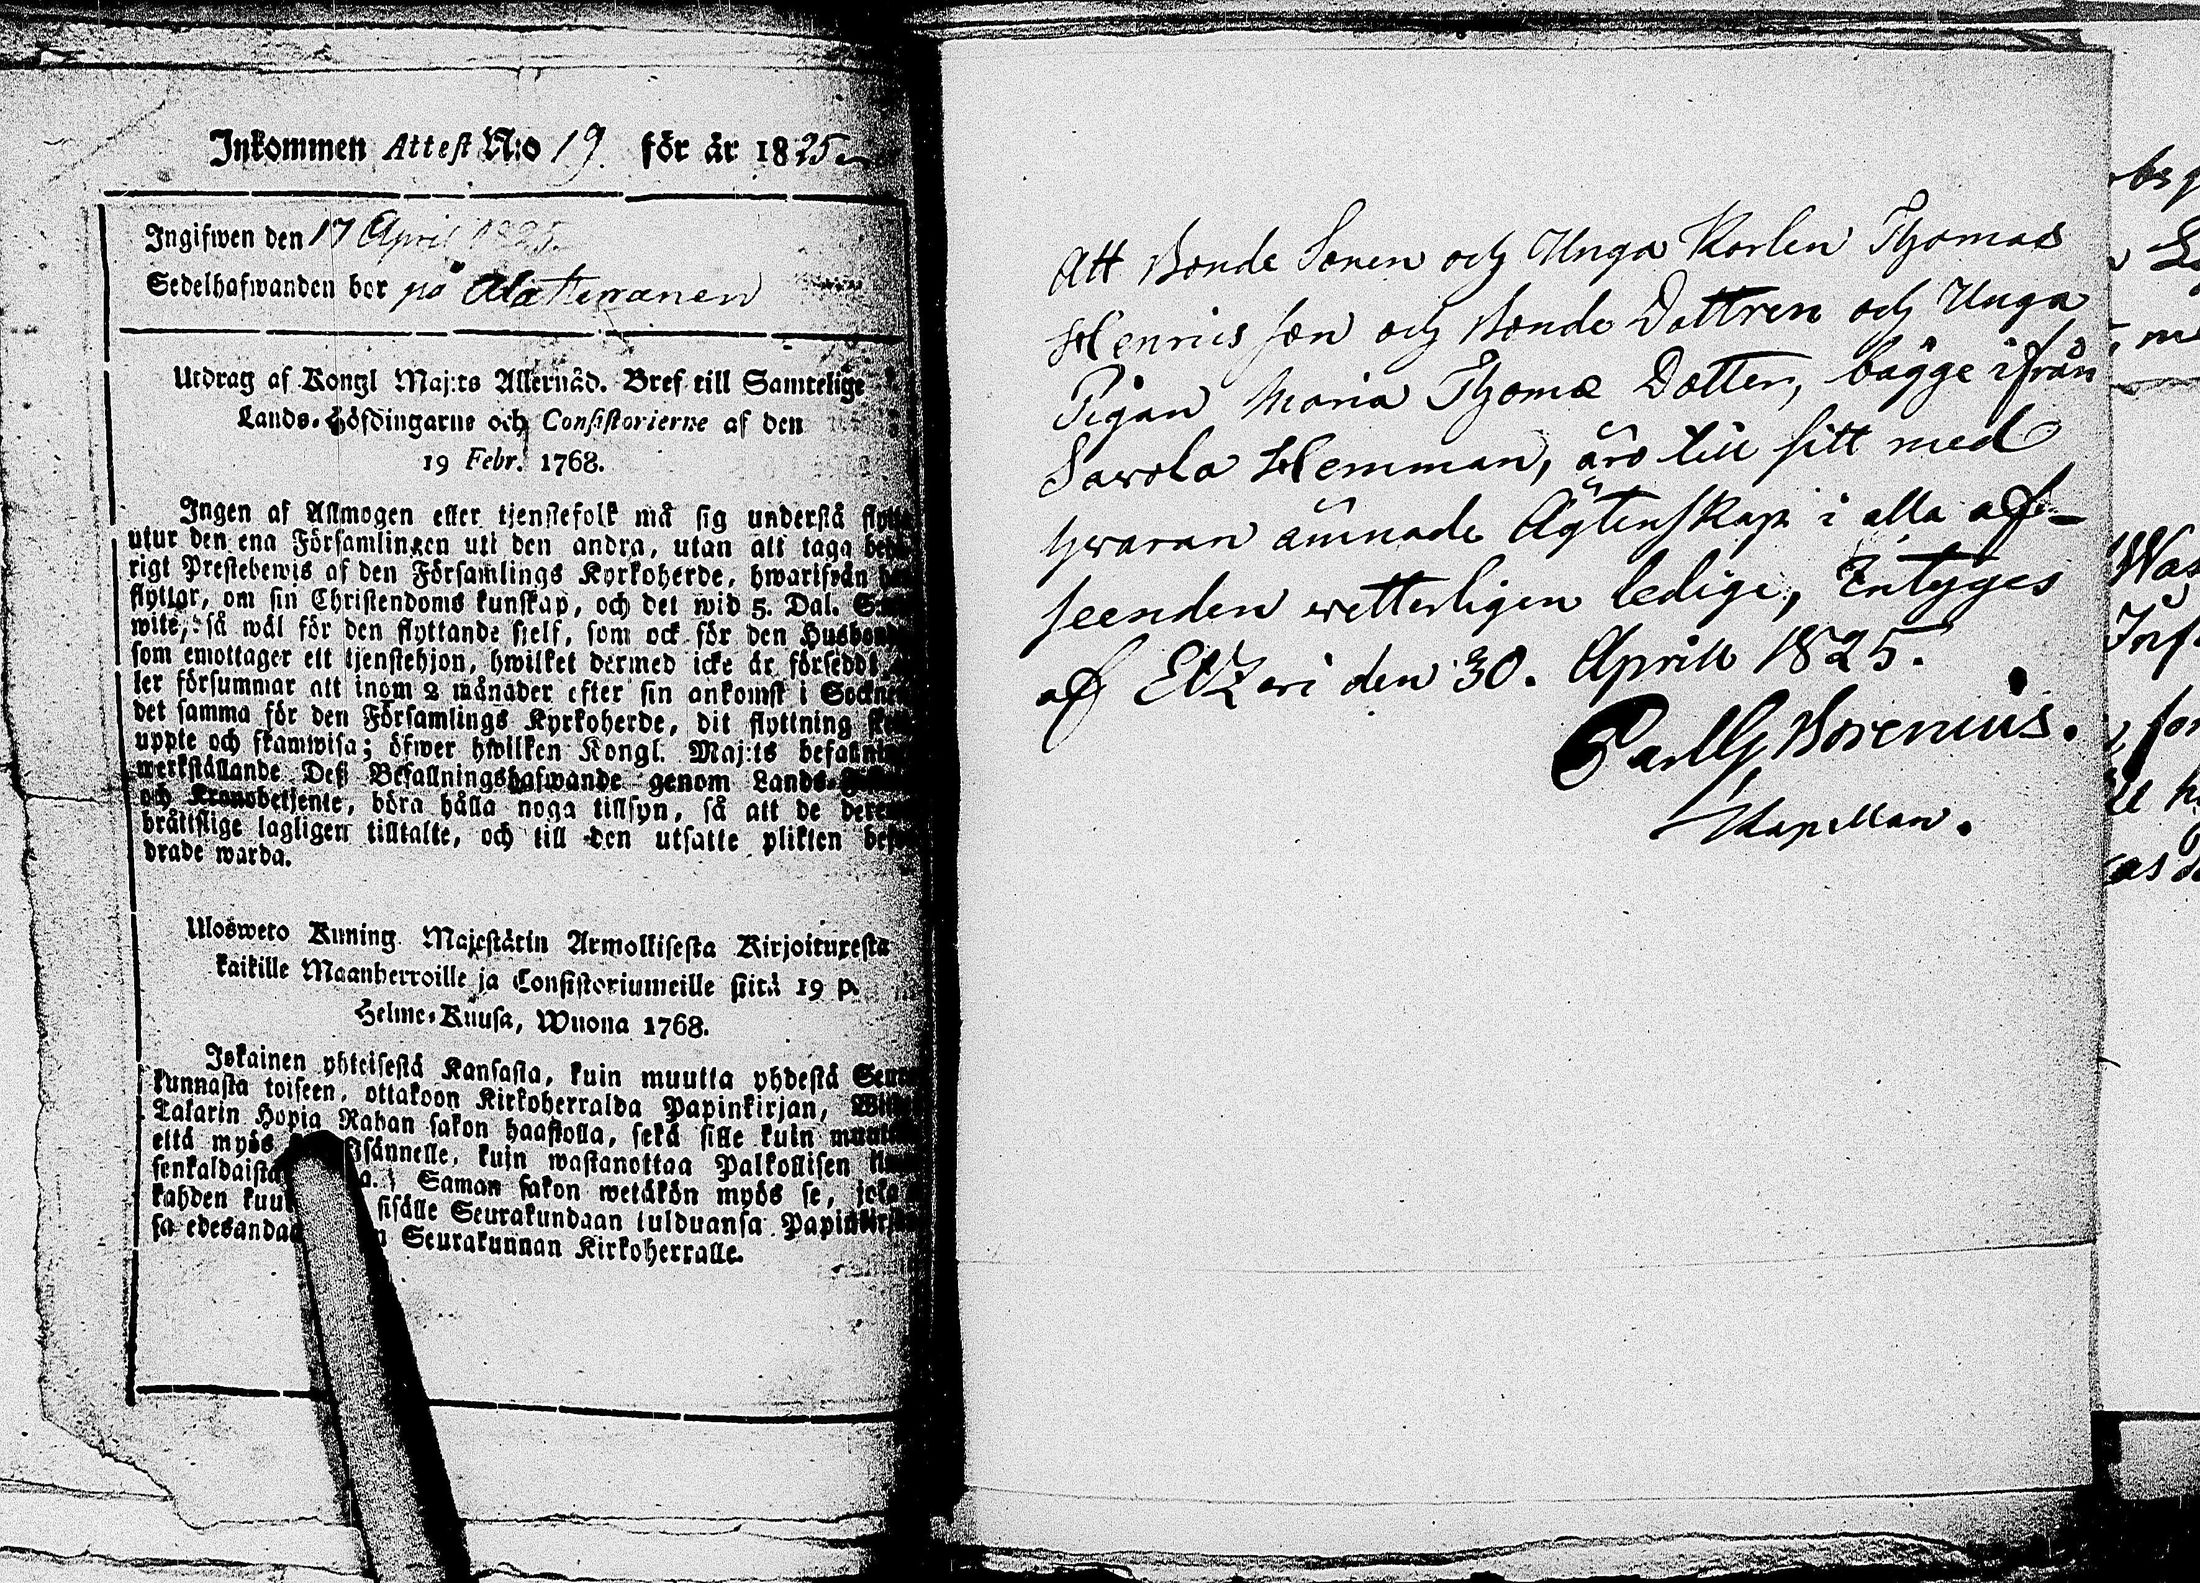 Inkommen Attest N:o 19. för år 1825
Ingifwen den 17 April 1825
Sedelhafwanden bor på
Utdrag af Kongl Maj:ts Allernåd. Bref till Samtelige
Lands-Höfdingarne och Consistorierne af den
19 Febr. 1768.
Ingen af Allmogen eller tjenstefolk må sig understå
utur den ena Församlingen uti den andra, utan att taga
rigt Prestebewis af den Församlings Kyrkoherde, hwarifrån
flyttar, om sin Christendoms kunskap, och det wid 5. Dal.
wite, så wäl för den flyttande sjelf, som ock för den
som emottager ett tjenstehjon, hwilket dermed icke är
ler försummar att inom 2 månader efter sin ankomst i
det samma för den Församlings Kyrkoherde, dit flyttning
uppte och framwisa; öfwer hwilken Kongl. Maj:ts
werkställande Deß Befallningshafwande genom Lands-
och Kronobetjente, böra hålla noga tillsyn, så att de
bråttslige lagligen tilltalte, och till den utsatte plikten
drade warda.
Ulosweto Kuning. Majestätin Armollisesta Kirjoituxesta
kaikille Maanherroille ja Consistoriumeille siitä 19 p.
Helme-Kuusa, Wuona 1768.
Jokainen yhteisestä Kansasta, kuin muutta yhdestä
kunnasta toiseen, ottakoon Kirkoherralda Papinkirjan,
Talarin Hopia Rahan sakon haastolla, sekä sille kuin
että myös Isännelle, kuin wastanottaa Palkollisen
senkaldaista Saman sakon wetäkön myös se, joka
kahden sisälle Seurakundaan tulduansa
sa Seurakunnan Kirkoherralle.
Att Bonde Sonen och Unga Karlen Thomas
Henrics son och Bonde Dottren och Unga
Pigan Maria Thomæ Dotter, bägge ifrån
Sawola Hemman, äro till sitt med
hwaran ämnade Ägtenskap i alla af-
seenden wetterligen ledige, Entyges
af Etzeri den 30. Aprill 1825.
Borenius.
Kapellan.